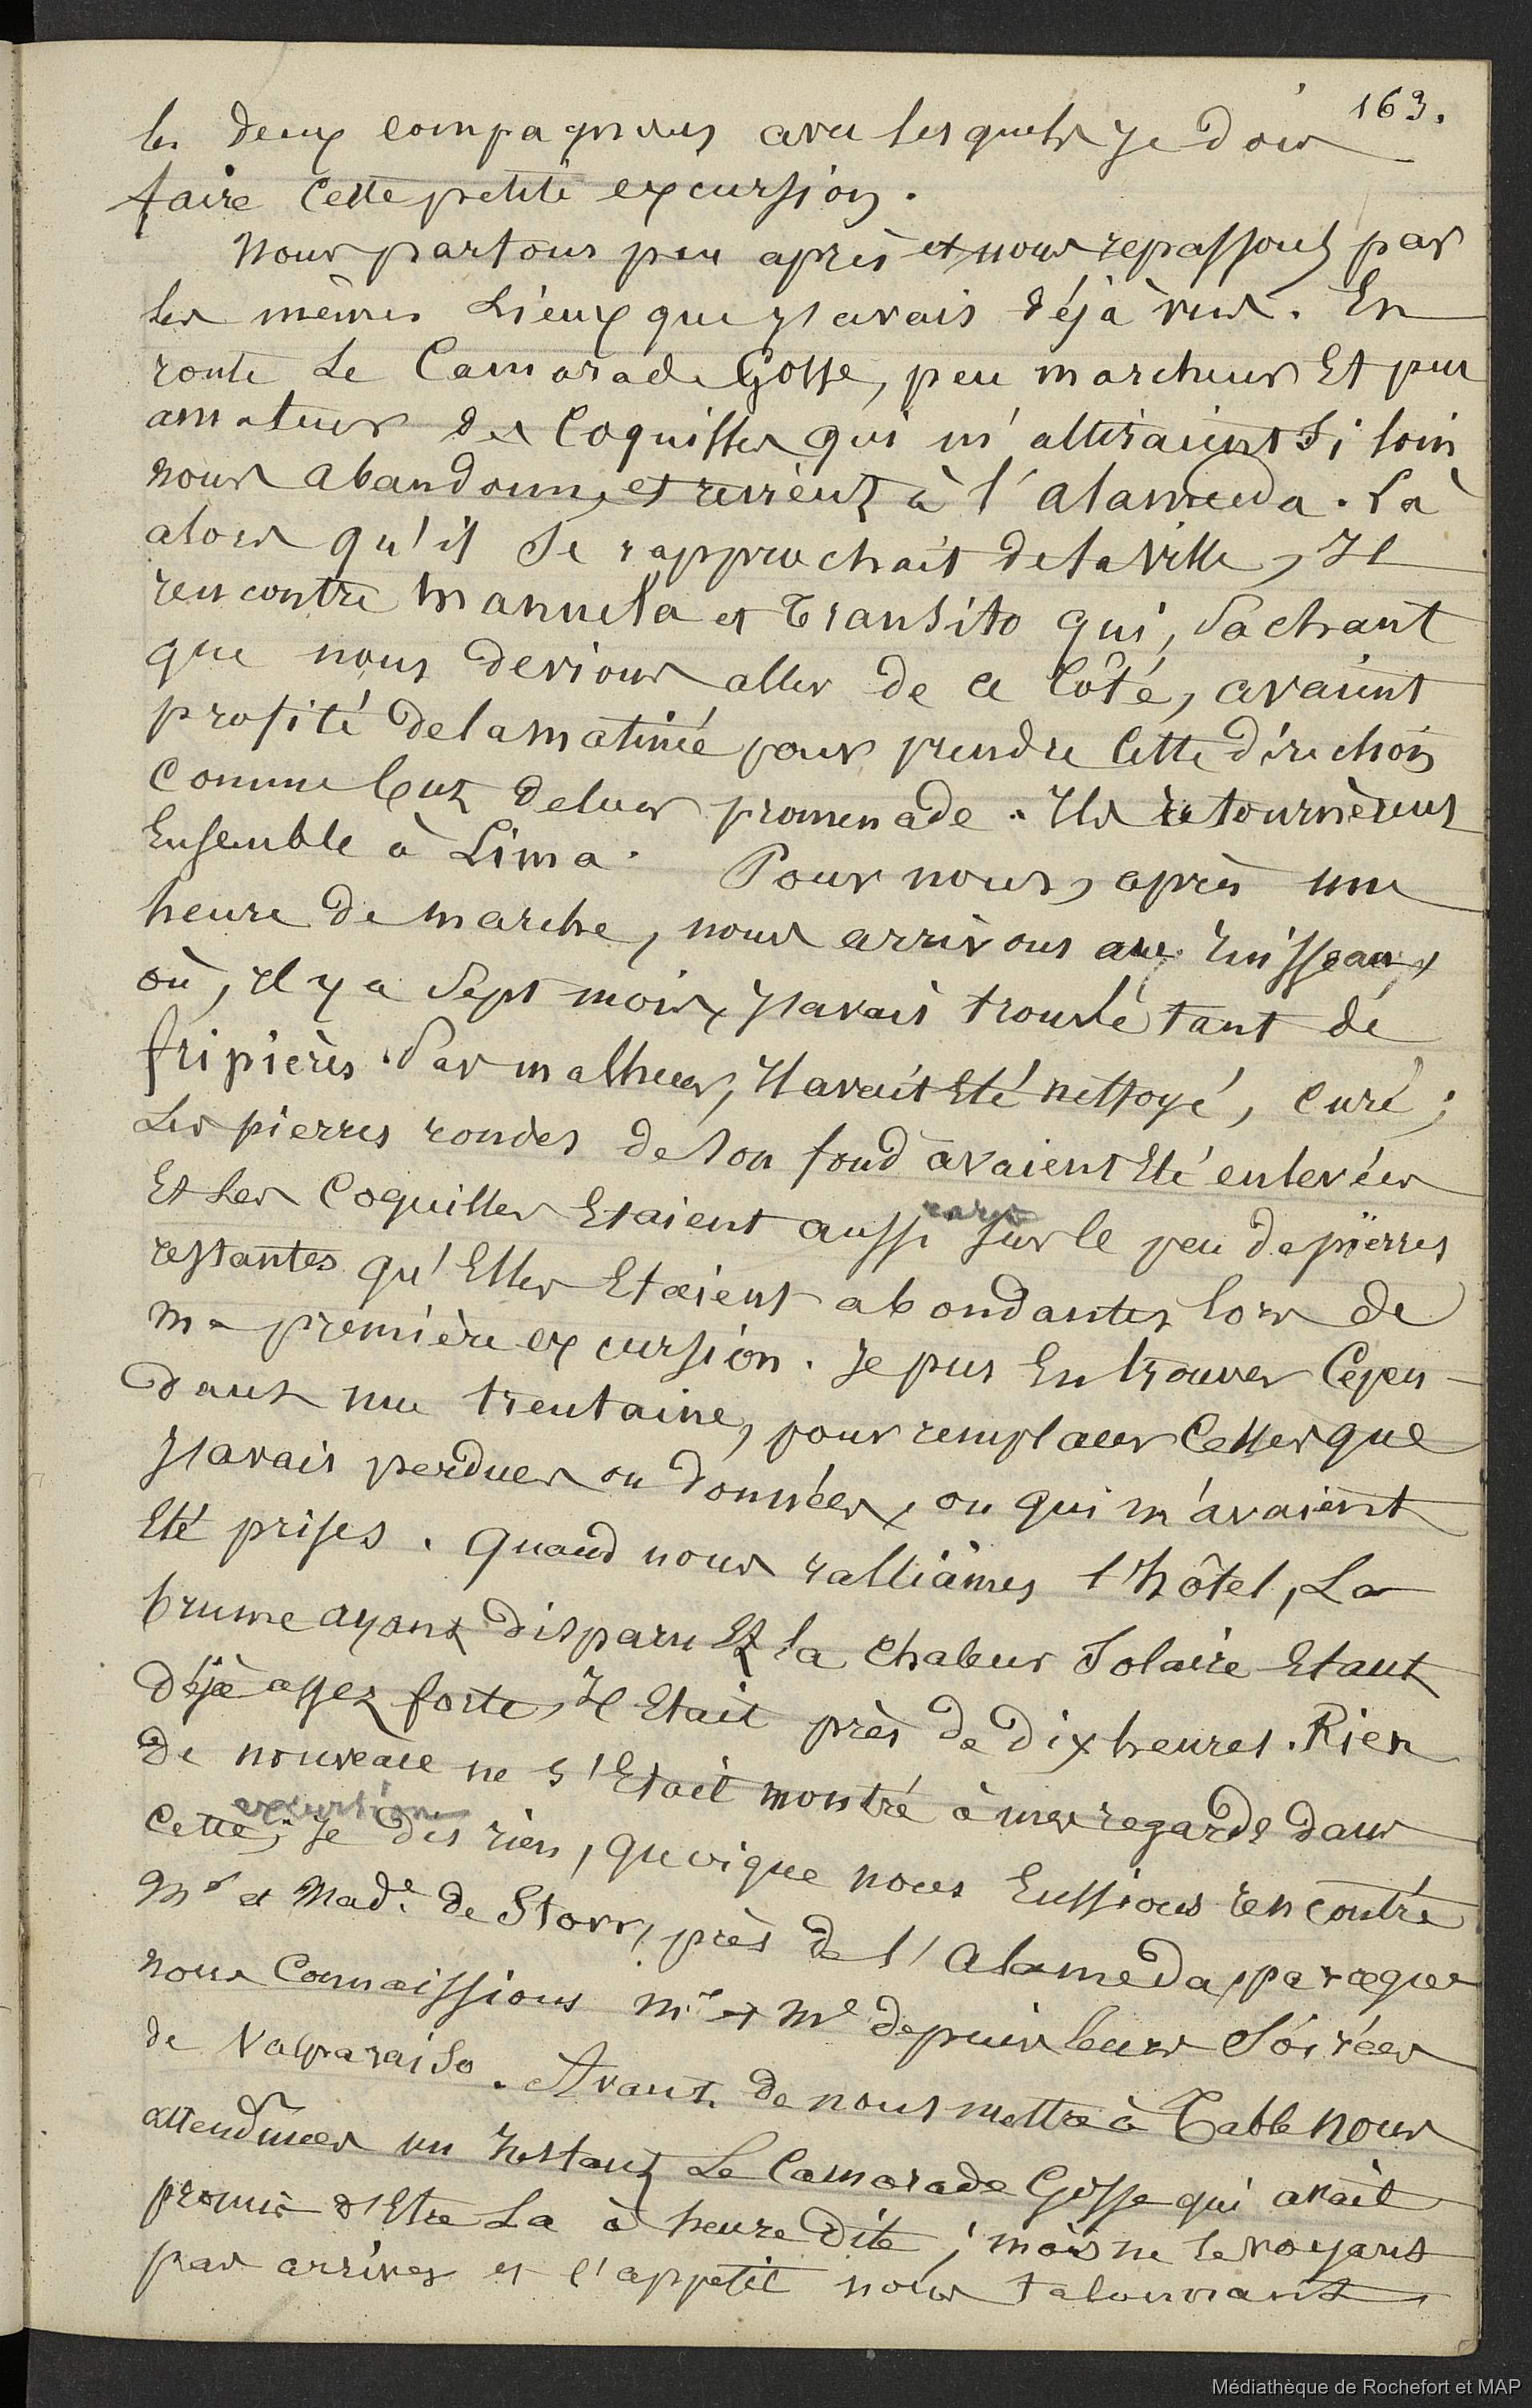 163.
les deux compagnons avec lesquels je dois
faire cette petite excursion.
Nous partons peu après et nous repassons par
les mêmes lieux que j'avais déjà vus. En
route le Camarade Gosse, peu marcheur Et peu
amateur des Coquilles qui m'attiraient si loin
nous abandonne, et revient à l'alameda. Là
alors qu'il se rapprochait de la ville, Il
rencontre Manuela et Transito qui, Sachant
que nous devions aller de ce Côté, avaient
profité de la matinée pour prendre Cette direction
Comme but de leur promenade. Ils retournèrent
Ensemble à Lima. Pour nous, après une
heure de marche, nous arrivons au ruisseau,
où, Il y a Sept mois, J'avais trouvé tant de
fripières. Par malheur, Il avait Eté nettoyé, curé;
Les pierres rondes de son fond avaient Eté enlevées
Et Les Coquilles Etaient aussi rares sur le peu de pierres
restantes qu'Elles Etaient abondantes lors de
ma première excursion. Je pus En trouver Cepen-
dant une trentaine, pour remplacer Celles que
J'avais perdues ou données, ou qui m'avaient
Eté prises. Quand nous ralliâmes l'hôtel, La
brume ayant disparu Et la Chaleur Solaire Etant
déjà assez forte, Il Etait près de dix heures. Rien
de nouveau ne s'Etait montré à mes regards dans
Cette excursion; Je dis rien, quoique nous Eussions rencontré
Mr et Made. de Storr, près de l'Alameda, parceque
nous Connaissions Mr et Me depuis leurs Soirées
de Valparaiso. Avant de nous mettre à Table nous
attendîmes un Instant Le Camarade Gosse qui avait
promis d'Etre La à heure dite; mais ne le voyant
pas arriver et l'appétit nous talonnant,
Médiathèque de Rochefort et MAP